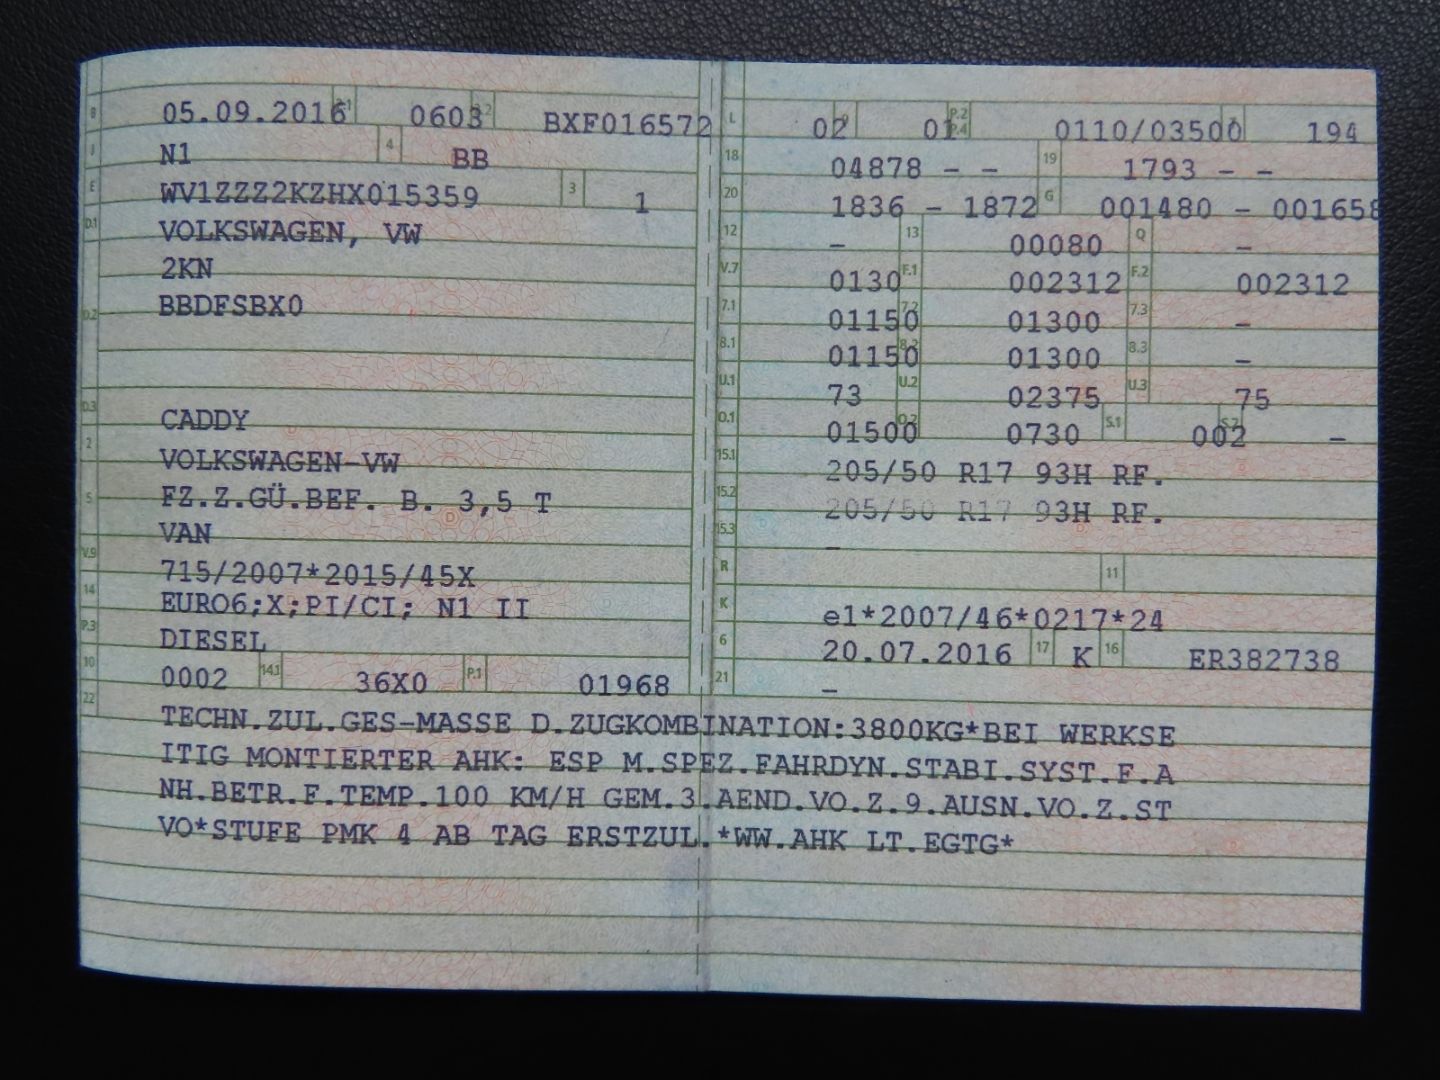 B 05.09.2016 2.1 0603 2.2 BXF016572
J N1 4 BB
E WV1ZZZ2KZHX015359 3 1
D.1 VOLKSWAGEN, VW
2KN
D.2 BBDFSBX0
D.3 CADDY
2 VOLKSWAGEN-VW
5 FZ.Z.GÜ.BEF. B. 3,5 T
VAN
V.9 715/2007*2015/45X
14 EURO6;X;PI/CI; N1 II
P.3 DIESEL
10 0002 14.1 36X0 P.1 01968
L 02 9 01 P.2 P.4 0110/03500 T 194
18 04878 - - 19 1793 - -
20 1836 - 1872 G 001480 - 001658
12 - 13 00080 Q -
V.7 0130 F.1 002312 F.2 002312
7.1 01150 7.2 01300 7.3 -
8.1 01150 8.2 01300 8.3 -
U.1 73 U.2 02375 U.3 75
O.1 01500 O.2 0730 S.1 002 S.2 -
15.1 205/50 R17 93H RF.
15.2 205/50 R17 93H RF.
15.3 -
R 11
K e1*2007/46*0217*24
6 20.07.2016 17 K 16 ER382738
21 -
22 TECHN.ZUL.GES-MASSE D.ZUGKOMBINATION:3800KG*BEI WERKSE
ITIG MONTIERTER AHK: ESP M.SPEZ.FAHRDYN.STABI.SYST.F.A
NH.BETR.F.TEMP.100 KM/H GEM.3.AEND.VO.Z.9.AUSN.VO.Z.ST
VO*STUFE PMK 4 AB TAG ERSTZUL.*WW.AHK LT.EGTG*